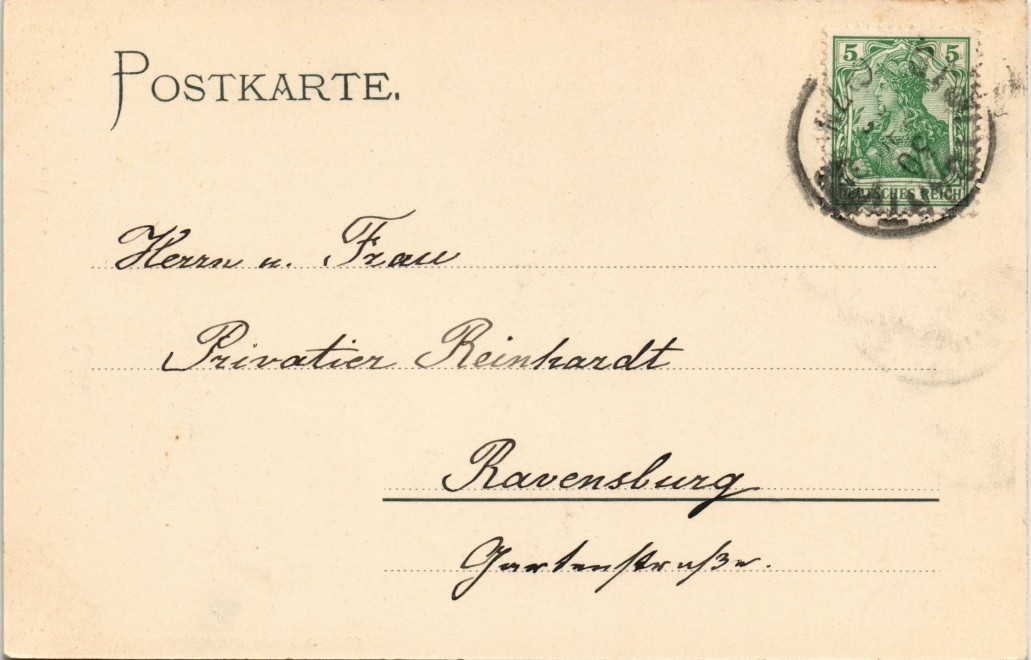 POSTKARTE.
5 5
DEUTSCHES REICH
Herrn u. Frau
Privatier Reinhardt
Ravensburg
Gartenstraße.